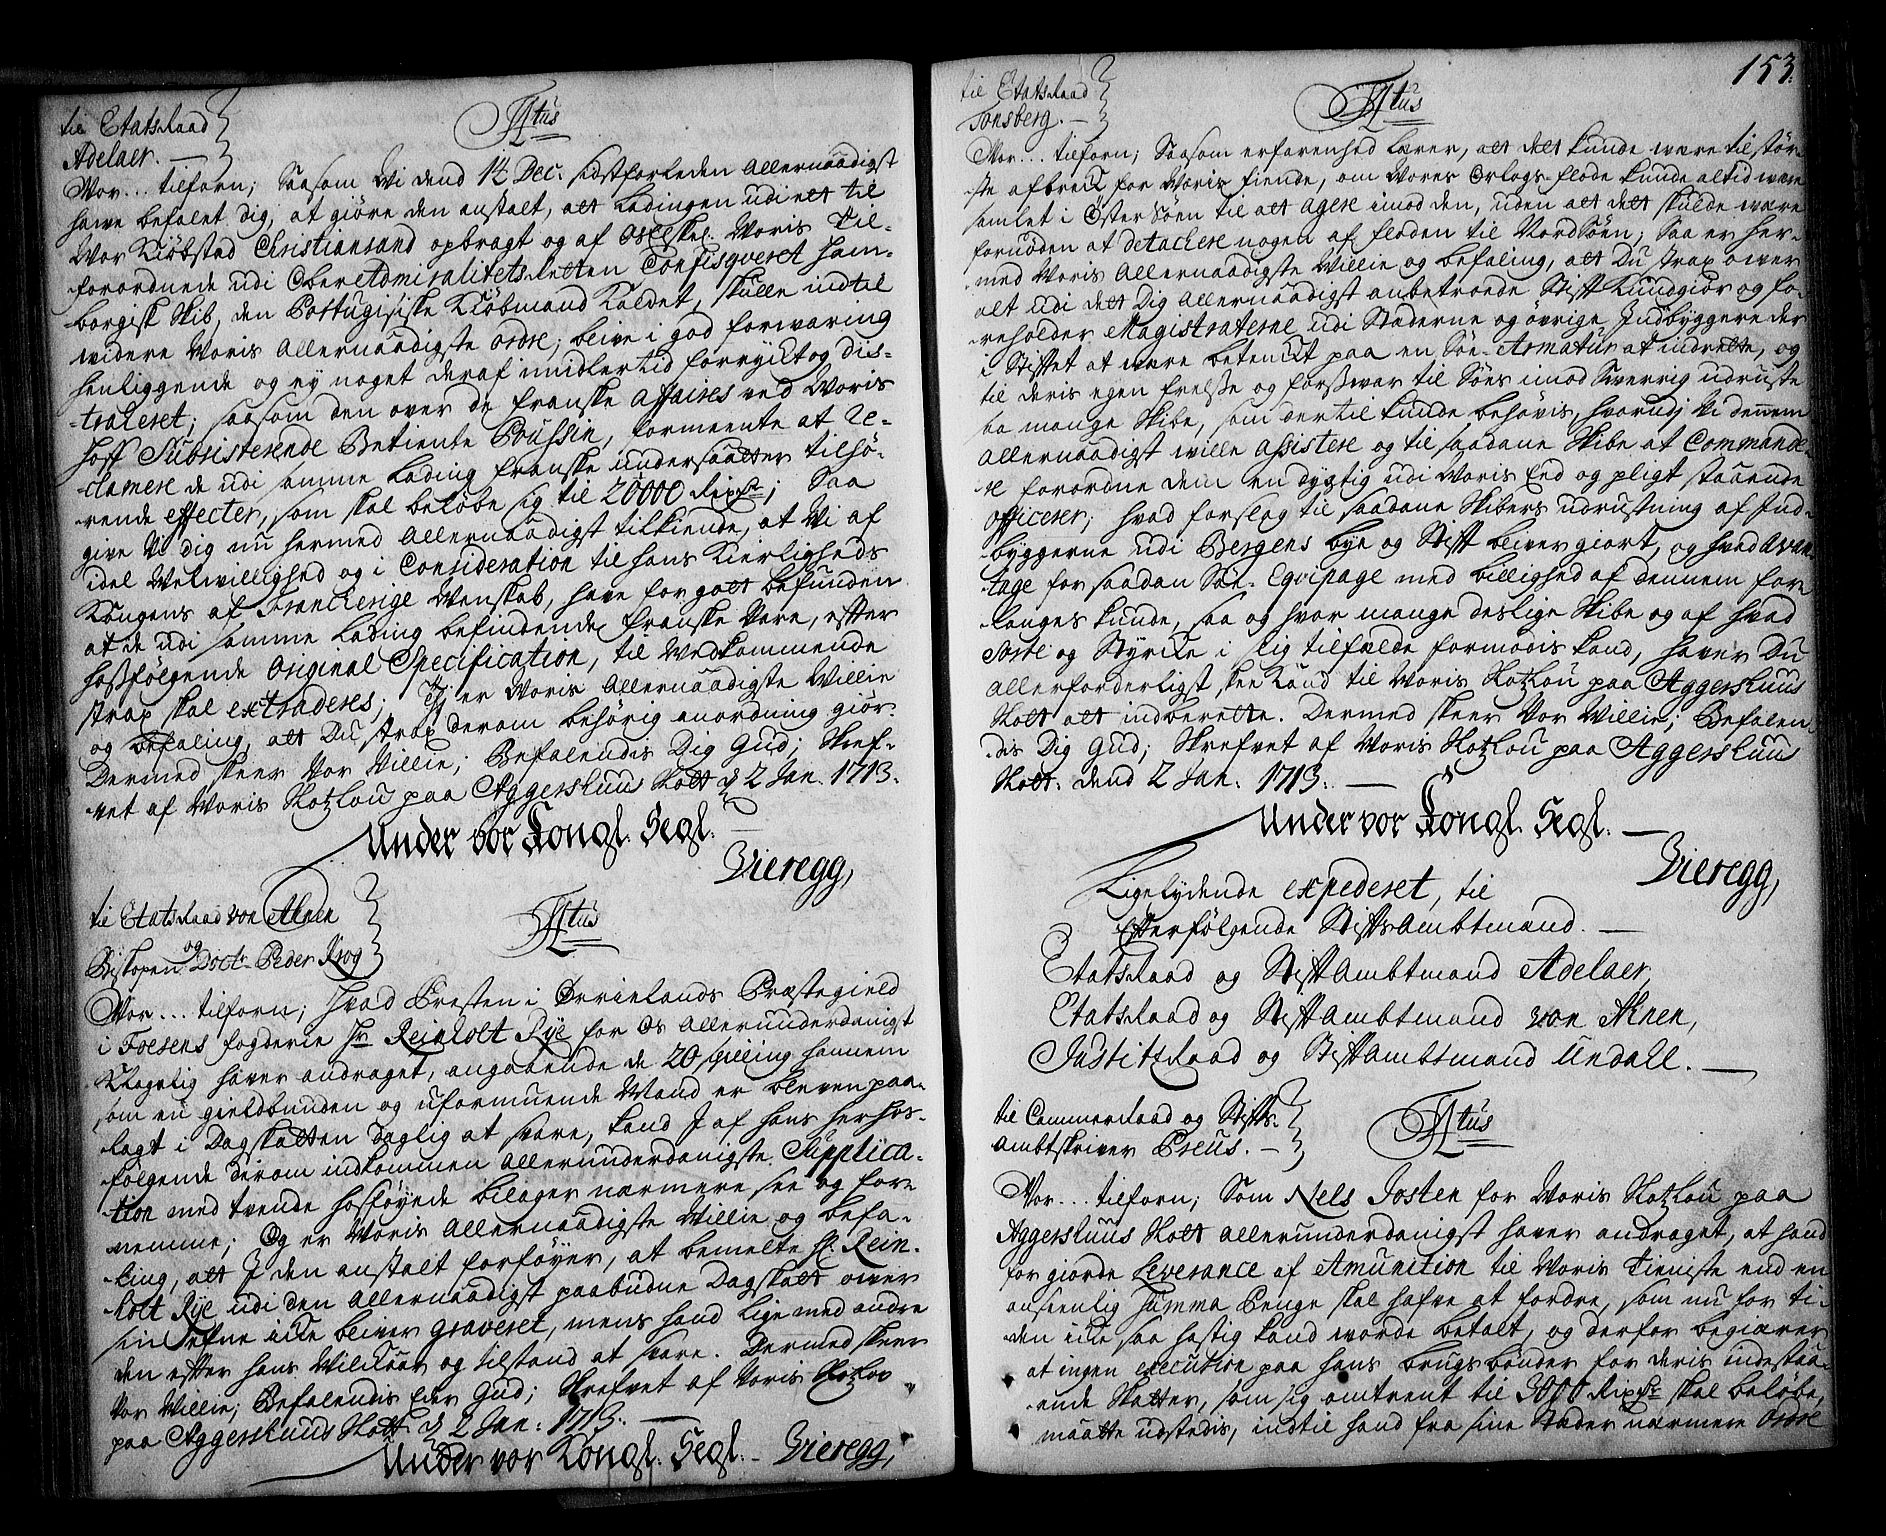 til Etatsraad
Adelaer. —
FAtus
Vor... tilforn; Saasom Vi dend 14 Dec. sidstforleden Allernaadigst
have befalet dig, at giøre den anstalt, at Ladingen udi et til
Vor Kiøbstad Christiansand opbragt og af Os ... Voris Til-
forordnede udi OberAdmiralitets-Retten Confisqveret Ham-
borgisk Skib, den Portugisiske Kiøbmand kaldet, skulle indtil
widere Voris Allernaadigste Ordre, blive i god forwaring
henliggende og ey noget deraf imidlertid forryckt og dis-
traheret; saasom den over de franske affaires ved Voris
Hoff Subsisterende Betiente Poussin, formeente at re-
clamere de udi samme Lading franske undersaatter tilhø-
rende effecter, som skal beløbe sig til 20000 Rixdr; Saa
give Vi dig nu hermed Allernaadigst tilkiende, at Vi af
idel Velwillighed og i Consideration til hans Kierligheds
Kongens af Franckerige Venskab, have for got befunden
at de udi samme Lading befindende franske Vare, efter
hosfølgende Original Specification, til Vedkommende
strax skal extraderes; Thj er Voris Allernaadigste Willie
og befaling, at Du strax derom behørig anordning giør.
Dermed skeer Vor Villie; Befalendis Dig Gud; Skref-
vet af Voris Slotzlou paa Aggershuus Slott d 2 Jan. 1713.
Under vor Kongl. Segl. —
Vieregg,
til Etatsraad von Ahnen
og
Biskopen Doctr Peder Krog
FAtus
Vor... tilforn; Hvad Presten i Ørrelands Præstegield
i Foesens fogderie Hr Reinholt Rye for Os Allerunderdanigst
klagelig haver andraget, angaaende de 20 skilling hannem
som en gieldbunden og uformuende Mand er bleven paa-
lagt i Dagskatten daglig at svare, kand I af hans herhos-
følgende derom indkommen allerunderdanigste Supplica-
tion med tvende hosføyede bilager nærmere see og for-
nemme; Og er Voris Allernaadigste Villie og befa-
ling, at I den anstalt forføyer, at bemelte Hr. Rein-
holt Rye udi den Allernaadigst paabudne Dagskatt over
sin Efne icke bliver graveret, mens hand lige med andre
den efter hans Vilckaar og tilstand at svare. Dermed skeer
Vor Villie; Befalendis Eder Gud; Skrefvet af Voris Slotzlov
paa Aggershuus Slott d 2 Jan: 1713. —
Under vor Kongl. Segl. — Vieregg,
153.
til Etatsraad
Tonsberg. —
FAtus
Vor... tilforn; Saasom erfarenhed lærer, at det kunde være til stør-
ste afbreck for Voris fiende, om Vores Orlogs-flode kunde altid være
samlet i Øster Søen til at agere imod den, uden at det skulde være
fornøden at detachere nogen af floden til Nordsøen; Saa er her-
med Voris Allernaadigste Willie og befaling, at Du strax over
alt udi det Dig Allernaadigst anbetroede Stift kundgiør og fo-
reholder Magistraterne udi Stæderne og øvrige Indbyggere der
i Stiftet at være betenckt paa en Søe-Armatur at indrette, og
til deris egen frelse og forsvar til Søes imod Sverrig udruste
saa mange Skibe, som dertil kunde behøvis, hvorudj Vi dennem
Allernaadigst wille assistere og til saadane Skibe at Commande-
re forordne dem en dygtig udi Voris Eed og pligt staaende
officerer; hvad forslag til saadane Skibers udrustning af Ind-
byggerne udi Bergens bye og Stift bliver giort, og hvad Avan-
tage for saadan Søe-Eqvipage med billighed af dennem for-
langes kunde, saa og hvor mange deslige Skibe og af hvad
Sorte og Styrcke i slig tilfælde formodis kand, haver Du
allerforderligst skee kand til Voris Slotzlou paa Aggershuus
Slott at indberette. Dermed skeer Vor Willie; Befalen-
dis Dig Gud; Skrefvet af Voris Slotzlou paa Aggershuus
Slott. dend 2 Jan. 1713. —
Under vor Kongl. Segl. —
Vieregg,
Ligelydende expederet, til
Efterfølgende Stiftsambtmænd. —
Etatsraad og Stiftambtmand Adelaer,
Etatsraad og Stiftambtmand von Ahnen,
Justitzraad og Stiftambtmand Undall. —
til Cammerraad og Stifts-
ambtskriver Preus. —
FAtus
Vor... tilforn; Som Nels Josten for Voris Slotzlou paa
Aggershuus Slott allerunderdanigst haver andraget, at hand
for giorde Leverance af Amunition til Voris Tieniste end en
anseenlig Summa Penge skal hafve at fordre, som nu for ti-
den icke saa hastig kand worde betalt, og derfor begiærer
at ingen execution paa hans brugsbønder for deris indestaa-
ende Skatter, som sig omtrent til 3000 Rixdr skal beløbe,
maatte udstedis, indtil hand fra sine Stæder nærmere Ordre